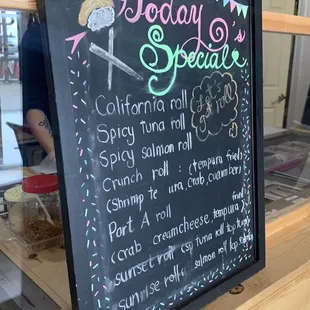 Today
Special
California roll
Spicy tuna roll
Spicy salmon roll
Crunch roll : (tempura fried)
(Shrimp te ura, cab, cucumber)
Port A roll
(crab creamcheese tempura fried)
sunset roll csp tuna roll top
sunrise roll salmon roll top